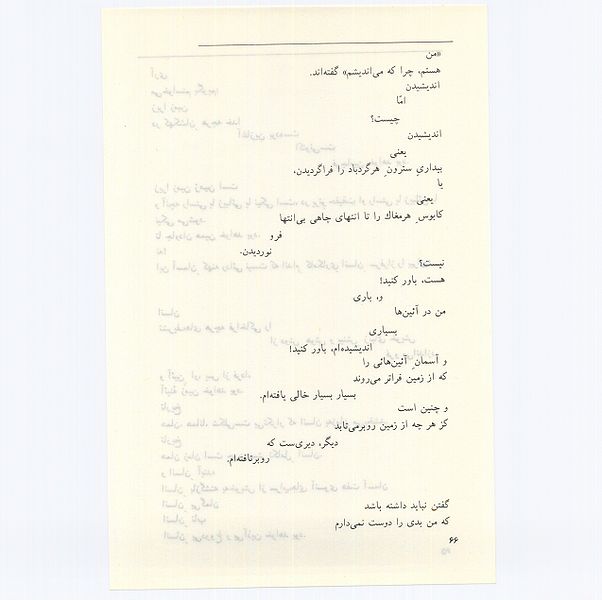 «من
هستم، چرا که می‌اندیشم» گفته‌اند.
اندیشیدن
امّا
چیست؟
اندیشیدن
یعنی
بیداریِ سترونِ هرگردباد را فراگردیدن،
یا
یعنی
کابوسِ هرمغاك را تا انتهای چاهی بی‌انتها
فرو
نوردیدن.
نیست؟
هست، باور کنید!
و، باری
من در آئین‌ها
بسیاری
اندیشیده‌ام، باور کنید!
و آسمانِ آئین‌هائی را
که از زمین فراتر می‌روند
بسیار بسیار خالی یافته‌ام.
و چنین است
کز هر چه از زمین روبرمی‌تابد
دیگر، دیری‌ست که
روبرتافته‌ام.
گفتن نباید داشته باشد
که من بدی را دوست نمی‌دارم
۶۶